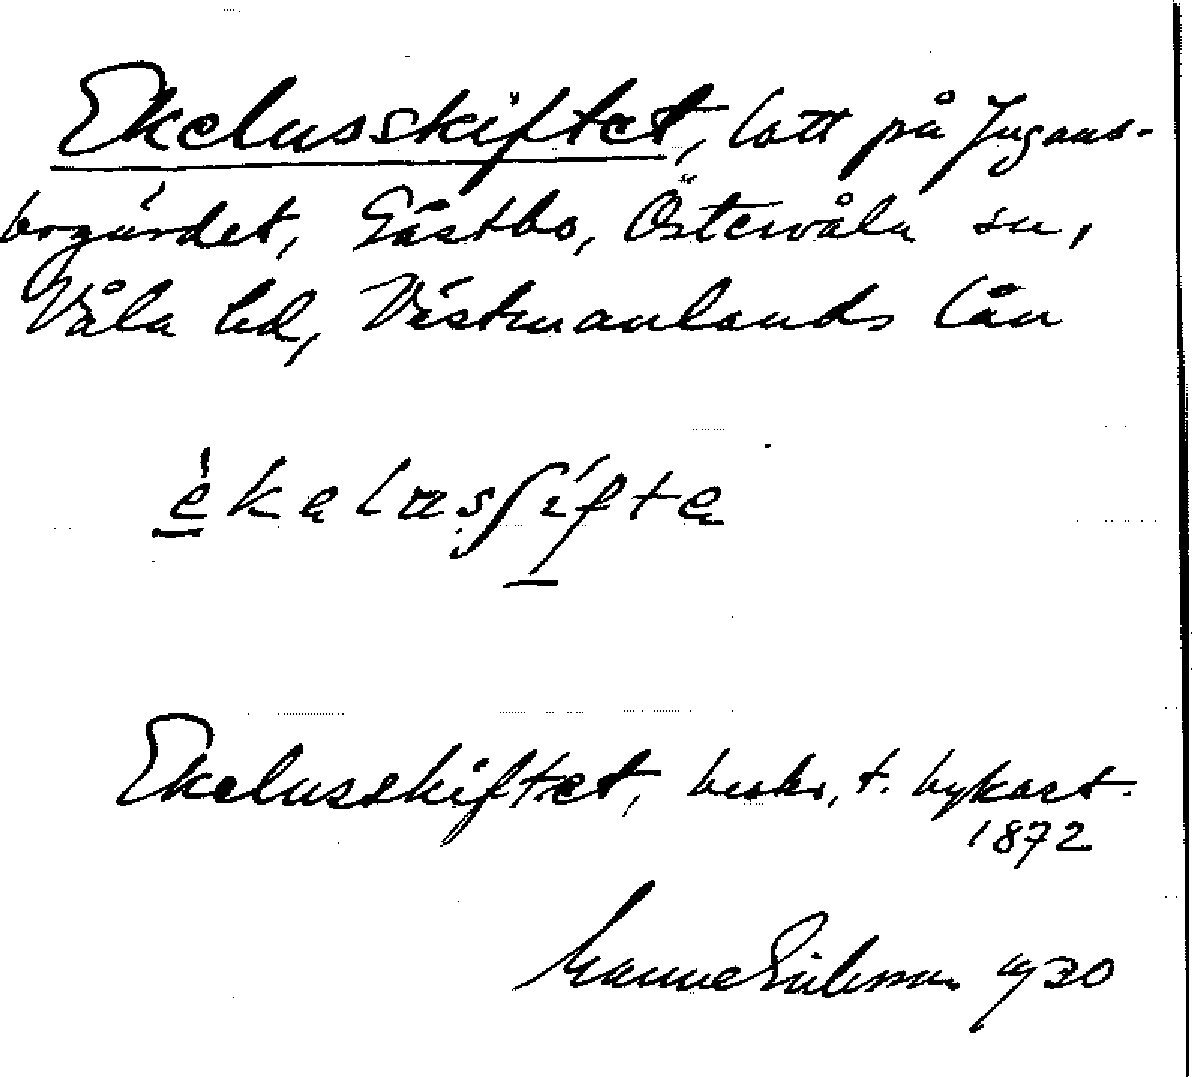 Ekelusskiftet, lott på Jugans-
bogärdet, Gästbo, Östervåla sn,
Våla hd, Västmanlands län
ekelusſifte
Ekelusskiftet, beskr. t. bykart.
1872
Manne Eriksson 1930